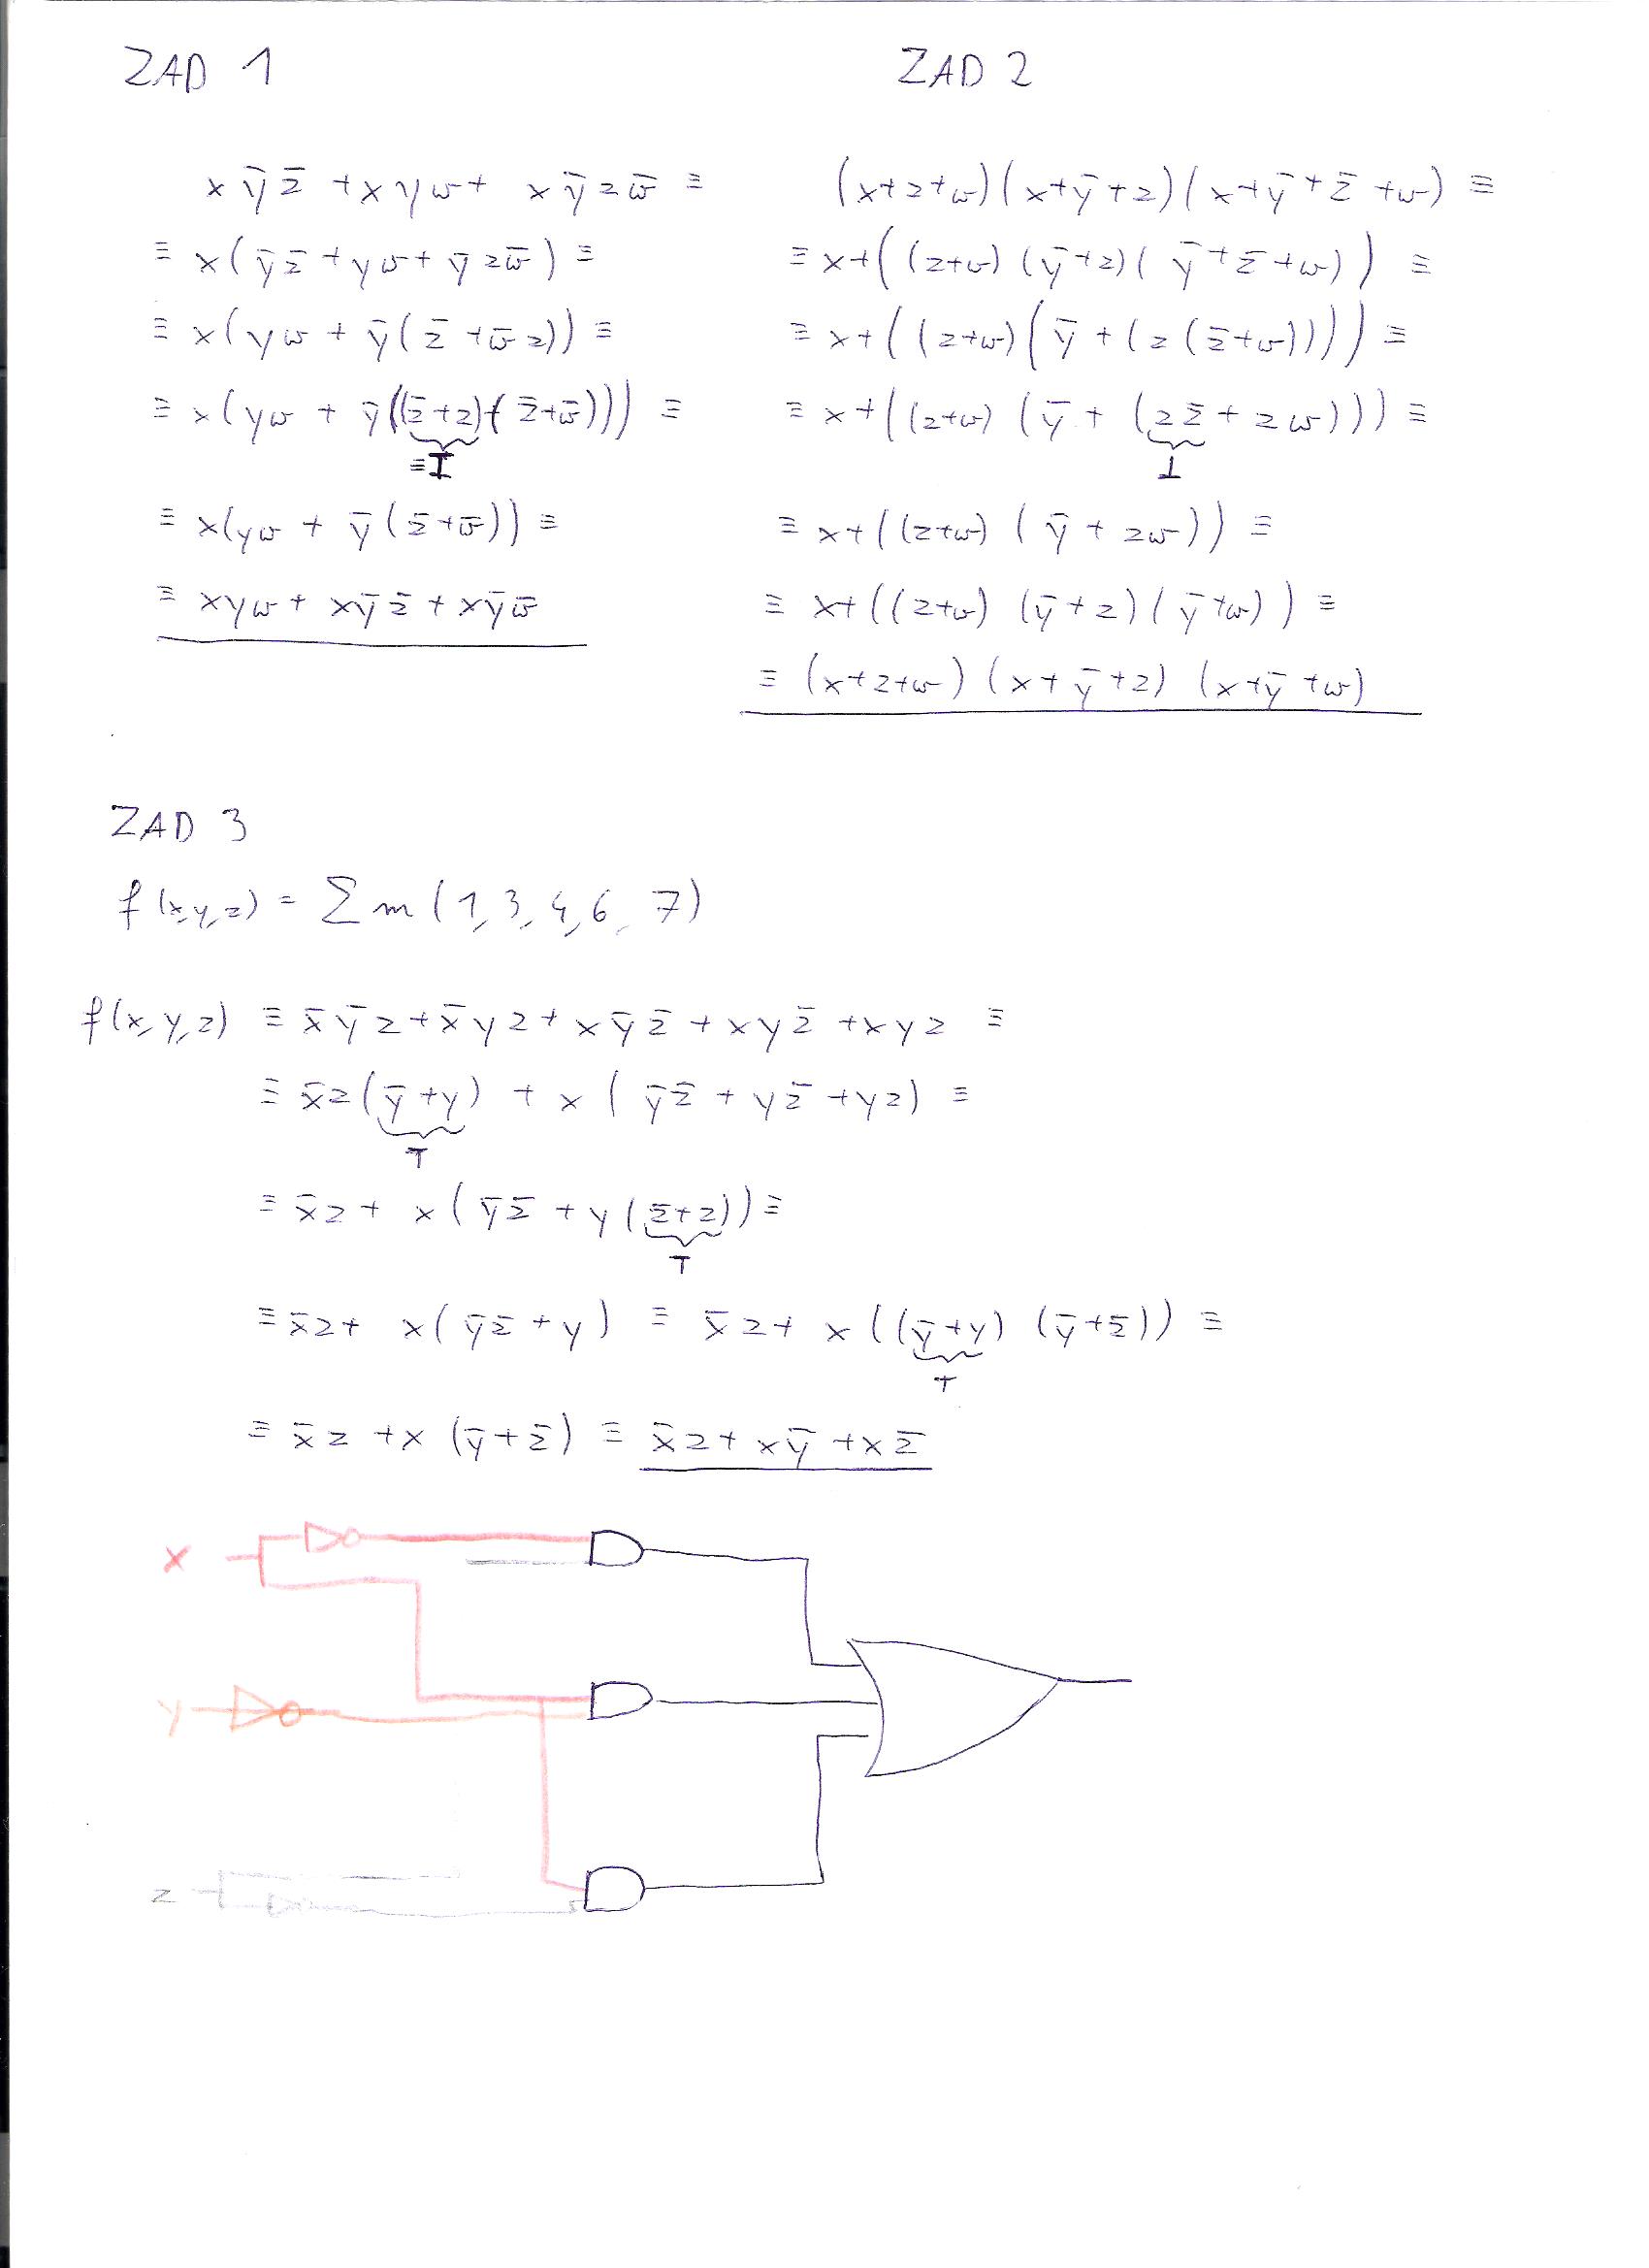 ZAD 1
x ȳ z̄ + x y w + x ȳ z w̄ ≡
≡ x(ȳ z̄ + y w + ȳ z w̄) ≡
≡ x(y w + ȳ(z̄ + w̄ z)) ≡
≡ x(y w + ȳ((z̄+z)(z̄+w̄))) ≡
≡I
≡ x(y w + ȳ(z̄+w̄)) ≡
≡ x y w + x ȳ z̄ + x ȳ w̄
ZAD 2
(x+z+w)(x+ȳ+z)(x+ȳ+z̄+w) ≡
≡ x+((z+w)(ȳ+z)(ȳ+z̄+w)) ≡
≡ x+((z+w)(ȳ+(z(z̄+w)))) ≡
≡ x+((z+w)(ȳ+(z z̄ + z w))) ≡
⊥
≡ x+((z+w)(ȳ + z w)) ≡
≡ x+((z+w)(ȳ+z)(ȳ+w)) ≡
≡ (x+z+w)(x+ȳ+z)(x+ȳ+w)
ZAD 3
f(x,y,z) = Σ m(1,3,4,6,7)
f(x,y,z) ≡ x̄ ȳ z + x̄ y z + x ȳ z̄ + x y z̄ + x y z ≡
≡ x̄ z(ȳ+y) + x(ȳ z̄ + y z̄ + y z) ≡
T
≡ x̄ z + x(ȳ z̄ + y(z̄+z)) ≡
T
≡ x̄ z + x(ȳ z̄ + y) ≡ x̄ z + x((ȳ+y)(ȳ+z̄)) ≡
T
≡ x̄ z + x(ȳ+z̄) ≡ x̄ z + x ȳ + x z̄
x
y
z